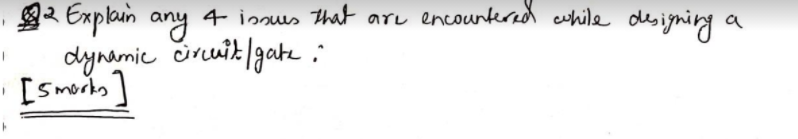 Q2 Explain any 4 issues that are encountered while designing a
dynamic circuit/gate :
[5 marks]